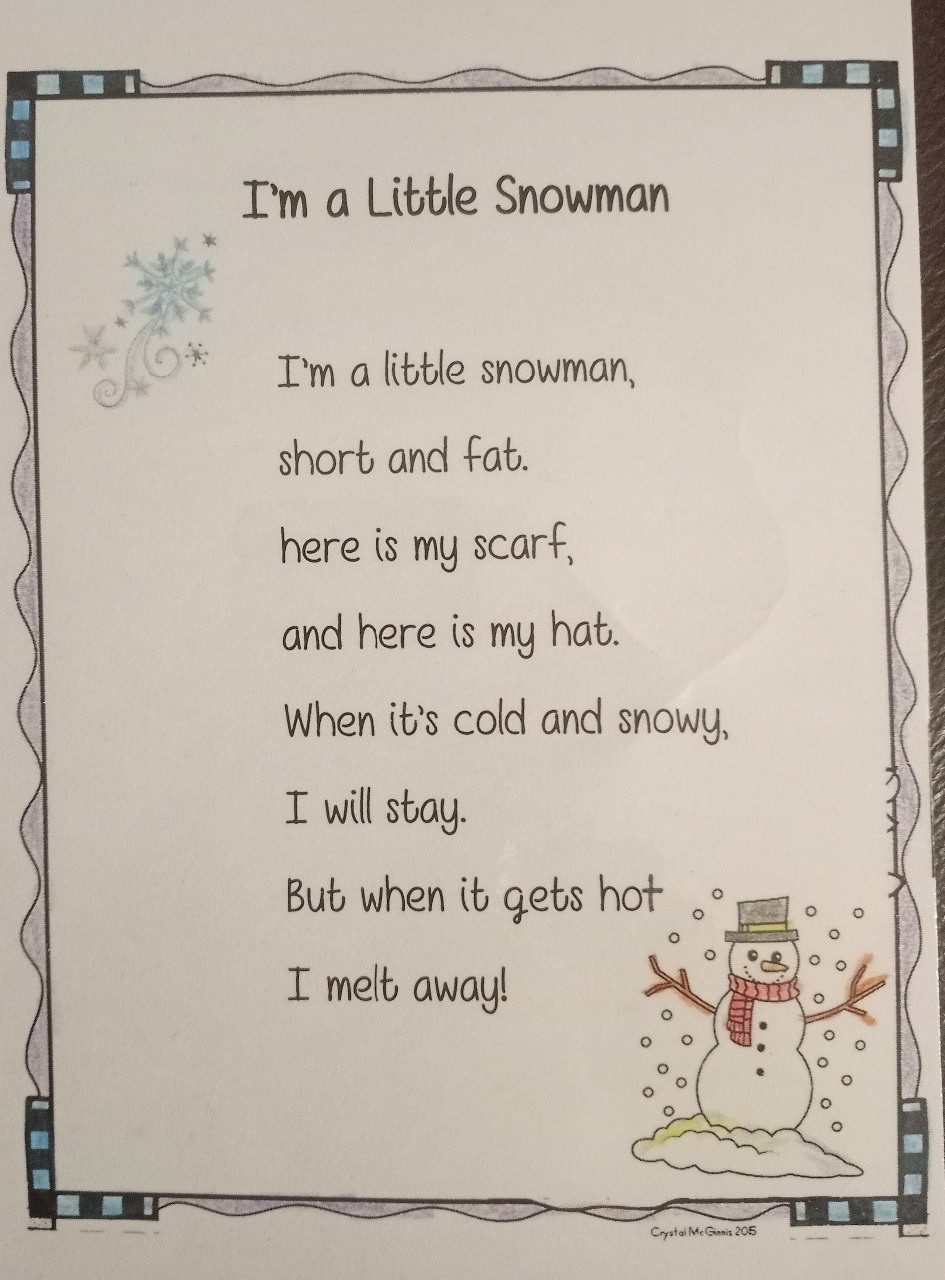 I'm a Little Snowman
I'm a little snowman,
short and fat.
here is my scarf,
and here is my hat.
When it's cold and snowy,
I will stay.
But when it gets hot
I melt away!
Crystal McGinnis 205